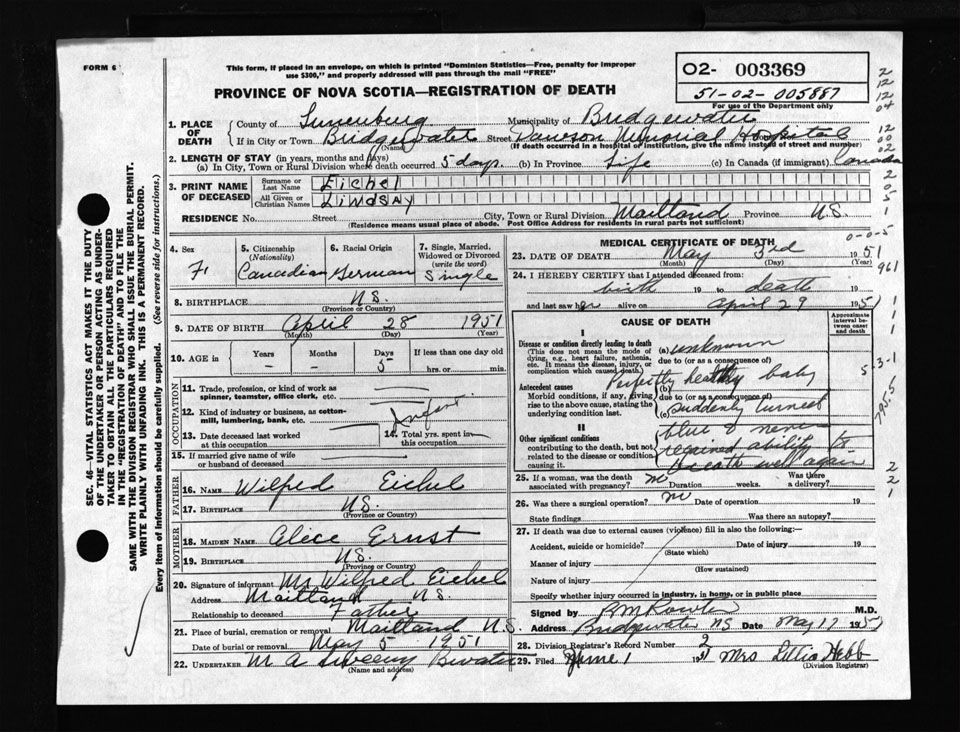 FORM 6
This form, if placed in an envelope, on which is printed "Dominion Statistics—Free, penalty for improper
use $300," and properly addressed will pass through the mail "FREE"
PROVINCE OF NOVA SCOTIA—REGISTRATION OF DEATH
02- 003369
51-02-005887
For use of the Department only
1. PLACE OF DEATH
County of Lunenburg Municipality of Bridgewater
If in City or Town Bridgewater Street Dawson Memorial Hospital
(Name) (If death occurred in a hospital or institution, give the name instead of street and number)
2. LENGTH OF STAY (in years, months and days)
(a) In City, Town or Rural Division where death occurred 5 days (b) In Province Life (c) In Canada (if immigrant) Canada
3. PRINT NAME OF DECEASED
Surname or Last Name Eichel
All Given or Christian Names LINDSAY
RESIDENCE No. Street City, Town or Rural Division Maitland Province N.S.
(Residence means usual place of abode. Post Office Address for residents in rural parts not sufficient)
4. Sex F.
5. Citizenship (Nationality) Canadian
6. Racial Origin German
7. Single, Married, Widowed or Divorced (write the word) Single
8. BIRTHPLACE N.S.
(Province or Country)
9. DATE OF BIRTH April 28 1951
(Month) (Day) (Year)
10. AGE in Years - Months - Days 5 If less than one day old hrs. or min.
OCCUPATION
11. Trade, profession, or kind of work as spinner, teamster, office clerk, etc.
12. Kind of industry or business, as cotton-mill, lumbering, bank, etc. Infant
13. Date deceased last worked at this occupation
14. Total yrs. spent in this occupation
15. If married give name of wife or husband of deceased
FATHER
16. NAME Wilfred Eichel
17. BIRTHPLACE N.S.
(Province or Country)
MOTHER
18. MAIDEN NAME Alice Ernst
19. BIRTHPLACE N.S.
(Province or Country)
20. Signature of informant Mr Wilfred Eichel
Address Maitland N.S.
Relationship to deceased Father
21. Place of burial, cremation or removal Maitland N.S.
Date of burial or removal May 5 1951
22. UNDERTAKER M A Sweeny B'water
(Name and address)
MEDICAL CERTIFICATE OF DEATH
23. DATE OF DEATH May 3rd 1951
(Month) (Day) (Year)
24. I HEREBY CERTIFY that I attended deceased from:
birth 19 to death 19
and last saw her alive on April 29 1951
CAUSE OF DEATH
Approximate interval between onset and death
I
Disease or condition directly leading to death
(This does not mean the mode of dying, e.g., heart failure, asthenia, etc. It means the disease, injury, or complication which caused death.)
(a) unknown
due to (or as a consequence of)
Antecedent causes
Morbid conditions, if any, giving rise to the above cause, stating the underlying condition last.
(b) Perfectly healthy baby
due to (or as a consequence of)
(c) suddenly turned
II
Other significant conditions
contributing to the death, but not related to the disease or condition causing it.
blue & never
regained ability to
breath well again
25. If a woman, was the death associated with pregnancy? no Duration weeks. Was there a delivery?
26. Was there a surgical operation? no Date of operation 19
State findings Was there an autopsy?
27. If death was due to external causes (violence) fill in also the following:—
Accident, suicide or homicide? Date of injury 19
(State which)
Manner of injury
(How sustained)
Nature of injury
Specify whether injury occurred in industry, in home, or in public place
Signed by M.D.
Address Bridgewater NS Date May 17 1951
28. Division Registrar's Record Number 2
29. Filed June 1 1951 Mrs Hebb
(Division Registrar)
SEC. 46—VITAL STATISTICS ACT MAKES IT THE DUTY
OF THE UNDERTAKER OR PERSON ACTING AS UNDERTAKER TO OBTAIN ALL THE PARTICULARS REQUIRED
IN THE "REGISTRATION OF DEATH" AND TO FILE THE
SAME WITH THE DIVISION REGISTRAR WHO SHALL ISSUE THE BURIAL PERMIT.
WRITE PLAINLY WITH UNFADING INK. THIS IS A PERMANENT RECORD.
Every item of Information should be carefully supplied. (See reverse side for instructions.)